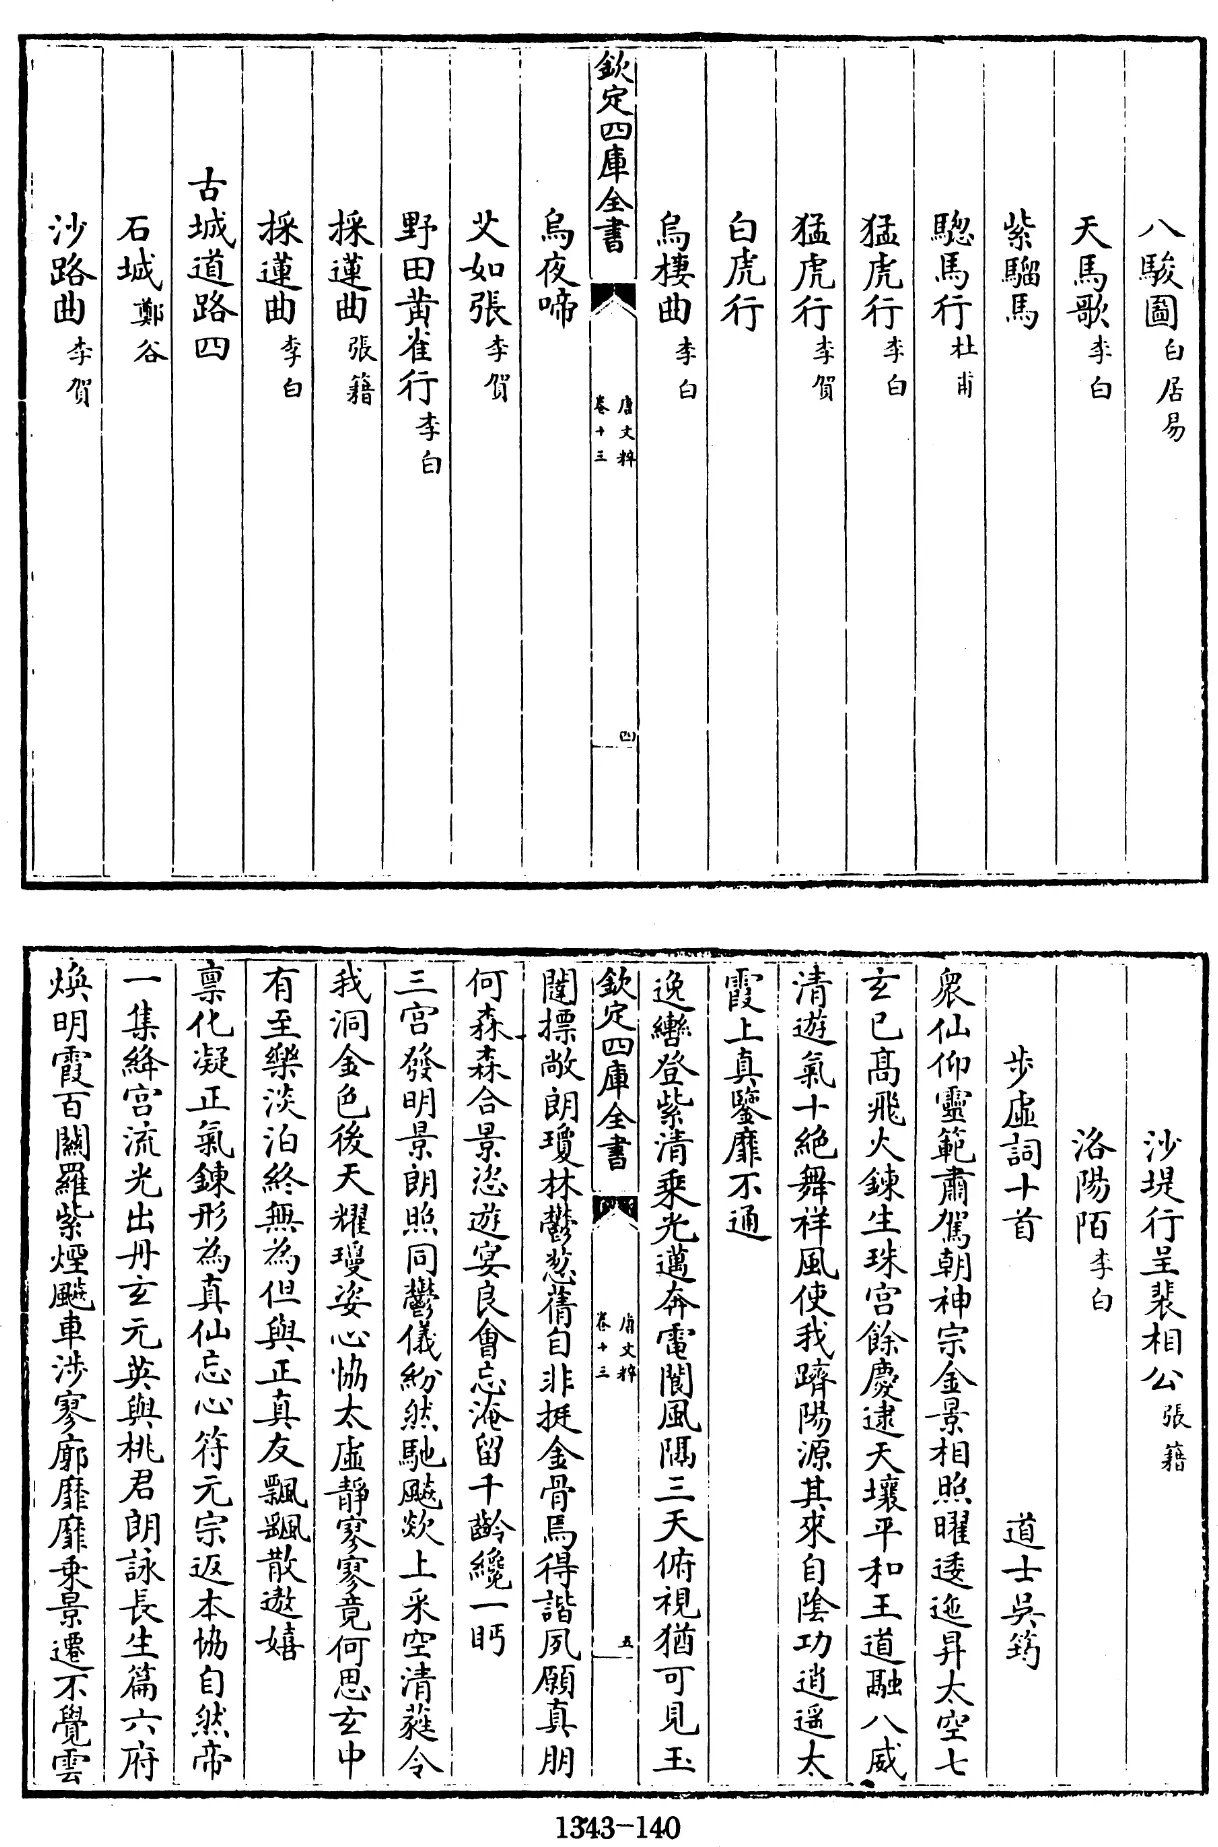 八駿圖白居易
天馬歌李白
紫騮馬
驄馬行杜甫
猛虎行李白
猛虎行李賀
白虎行
烏棲曲李白
欽定四庫全書
唐文粹
卷十三
四
烏夜啼
艾如張李賀
野田黃雀行李白
採蓮曲張籍
採蓮曲李白
古城道路四
石城鄭谷
沙路曲李賀
沙堤行呈裴相公張籍
洛陽陌李白
步虛詞十首 道士吳筠
衆仙仰靈範肅駕朝神宗金景相照曜逶迤昇太空七
玄已高飛火鍊生珠宮餘慶逮天壤平和王道融八威
清遊氣十絶舞祥風使我躋陽源其來自陰功逍遥太
霞上真鑒靡不通
逸轡登紫清乘光邁奔電閬風隔三天俯視猶可見玉
欽定四庫全書
唐文粹
卷十三
五
闥摽敞朗瓊林鬱葱蒨自非挺金骨焉得諧夙願真朋
何森森合景恣遊宴良會忘淹留千齡纔一眄
三宮發明景朗照同鬱儀紛然馳飈歘上采空清蕤令
我洞金色後天耀瓊姿心協太虛靜寥寥竟何思玄中
有至樂淡泊終無為但與正真友飄飄散遨嬉
禀化凝正氣鍊形為真仙忘心符元宗返本協自然帝
一集絳宮流光出丹玄元英與桃君朗詠長生篇六府
煥明霞百關羅紫煙飈車涉寥廓靡靡乘景遷不覺雲
1343-140